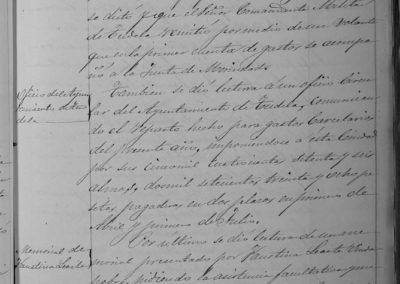 se dictó y que el Señor Comandante Militar
de Tudela remitió por medio de un volante
que en la primer cuenta de gastos se acompa
ñó a la Junta de Merindad.
Oficio del Ayun
tamiento de Tu
dela
Tambien se dio lectura a un oficio circu
lar del Ayuntamiento de Tudela, comunican
do el reparto hecho para gastos Carcelarios
del presente año, imponiendo a esta Ciudad
por sus cincomil cuatrocientas setenta y seis
almas, dosmil setecientas treinta y ocho pe
setas pagaderas en dos plazos en primero de
Abril y primero de Julio.
Memorial de
Faustina
Por último se dio lectura de un me
morial presentado por Faustina
pidiendo la asistencia facultativa